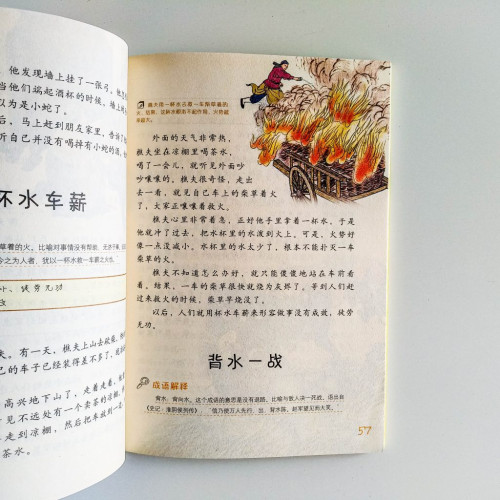 ，他发现墙上挂了一张弓，他
当他们端起酒杯的时候，墙上
以为是小蛇了。
后，马上赶到朋友家里，告诉了
听自己并没有喝掉有小蛇的酒，
杯水车薪
草着的火。比喻对事情没有帮助，无济于事。
今之为人者，犹以一杯水救一车薪之火也。
补、徒劳无功
夫。有一天，樵夫上山去砍柴，
己的车子已经装得差不多了，
高兴地下山了，走着走着，
见不远处有一个卖茶的凉棚，
走到凉棚，然后把车放到一
茶水。
樵夫用一杯水去救一车柴草着的
火，结果，这杯水根本不起作用，火势越
来越大。
外面的天气非常热，
樵夫坐在凉棚里喝茶水，
喝了一会儿，就听见外面吵
吵嚷嚷的。樵夫很奇怪，走出
去一看，就见自己车上的柴草着火
了，大家正嚷嚷着救火。
樵夫心里非常着急，正好他手里拿着一杯水，于是
他就冲了过去，把水杯里的水泼到火上，可是，火势好
像一点没减小，水杯里的水太少了，根本不能扑灭一车
柴草的火。
樵夫不知道怎么办好，就只能傻傻地站在车前看
着。结果，一车的柴草很快就烧为灰烬了。等到人们赶
过来救火的时候，柴草早烧没了。
以后，人们就用杯水车薪来形容做事没有成效，徒劳
无功。
背水一战
成语解释
背水，背向水。这个成语的意思是没有退路，比喻与敌人决一死战。语出自
《史记·淮阴侯列传》：“信乃使万人先行，出，背水陈。赵军望见而大笑。
57